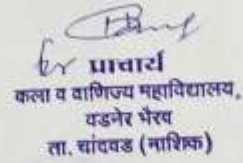 for प्राचार्य
कला व वाणिज्य महाविद्यालय,
वडनेर भैरव
ता. चांदवड (नाशिक)